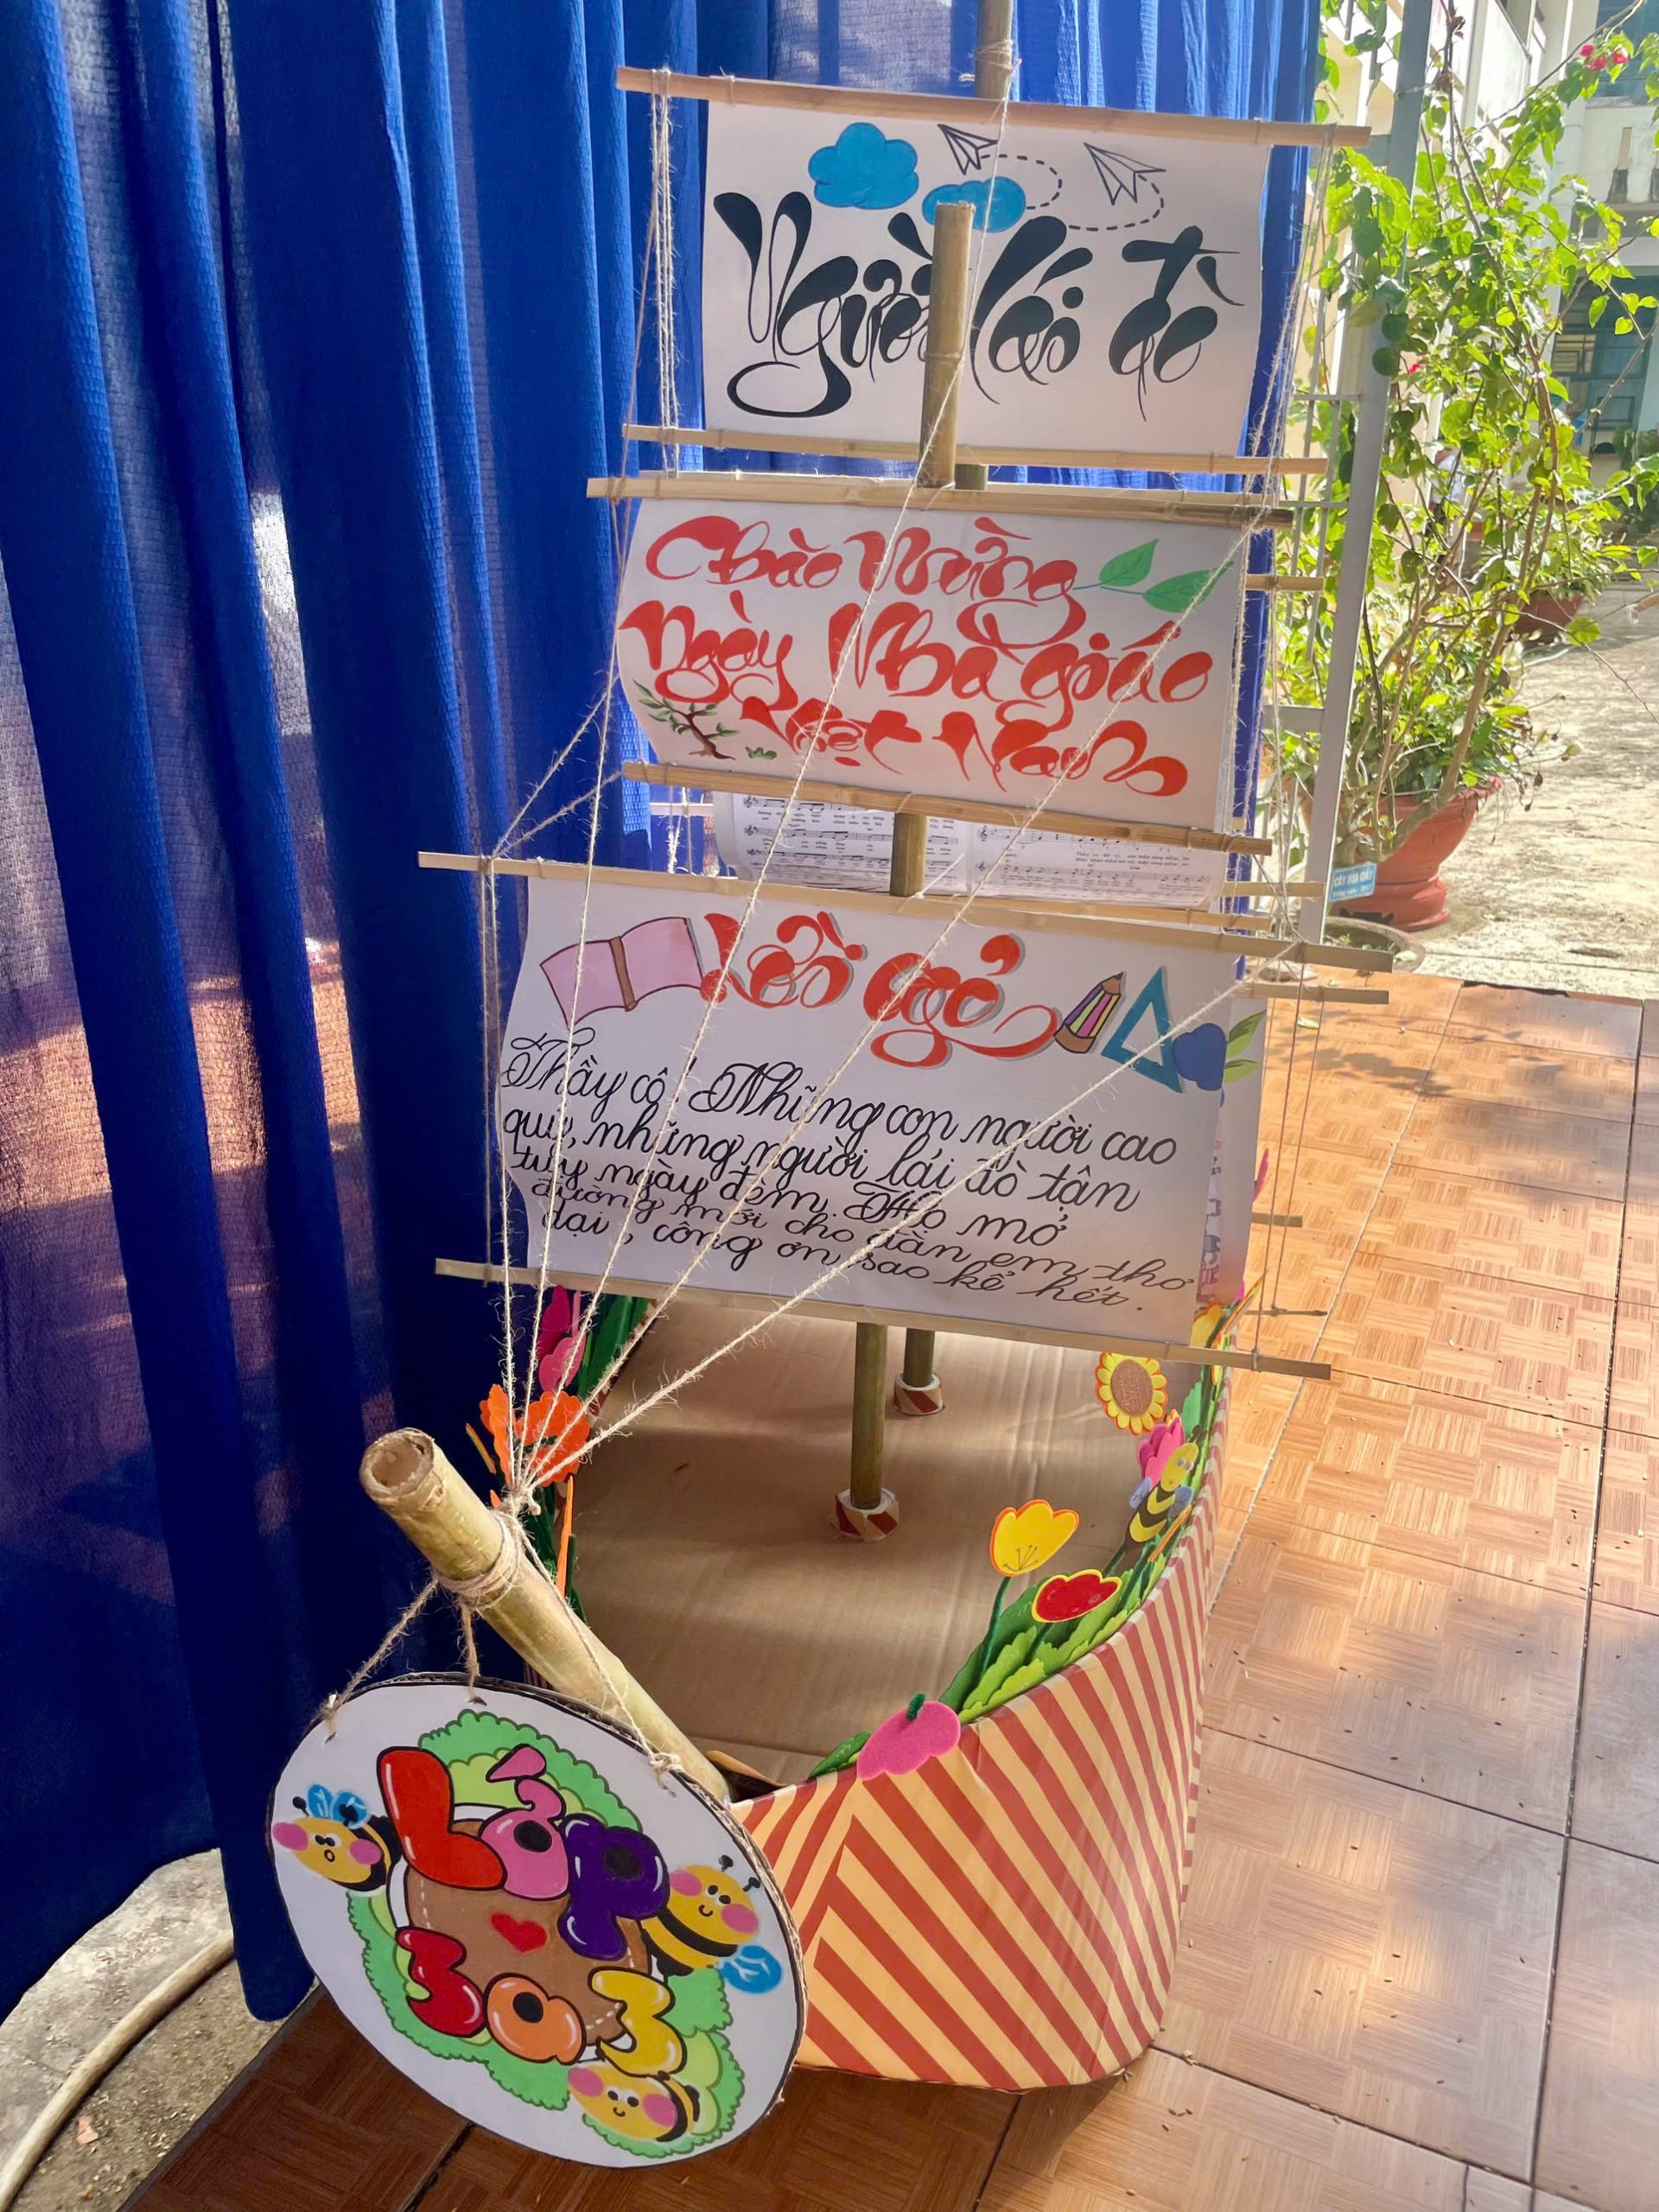 Người lái đò
Chào Mừng
Ngày Nhà giáo
Việt Nam
Lời ngỏ
Thầy cô! Những con người cao
quý, những người lái đò tận
tụy ngày đêm. Họ mở
đường mới cho đàn em thơ
dại, công ơn sao kể hết.
Lớp
3a3